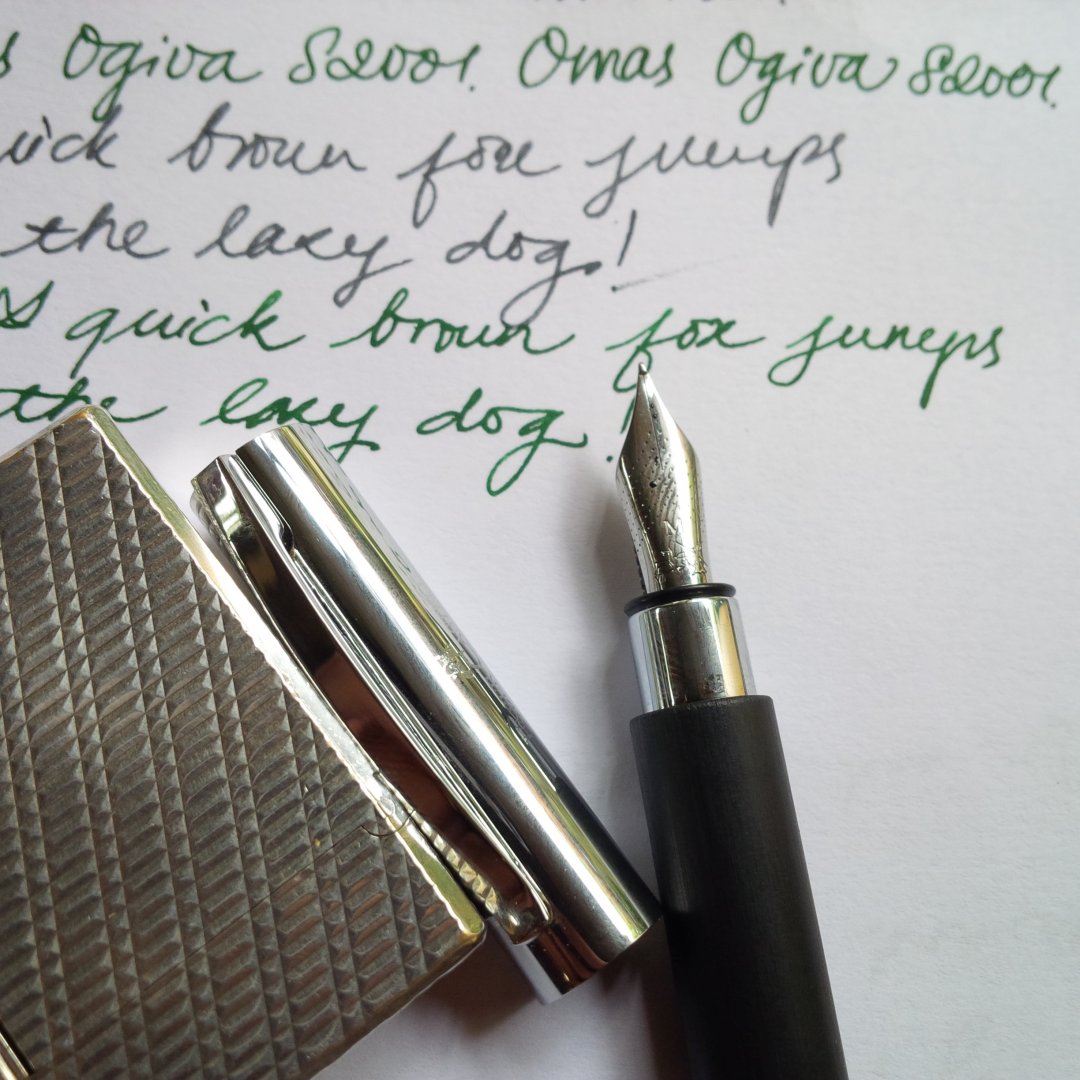 s Ogiva S2001. Omas Ogiva S2001.
uick brown fox jumps
the lazy dog!
quick brown fox jumps
the lazy dog!